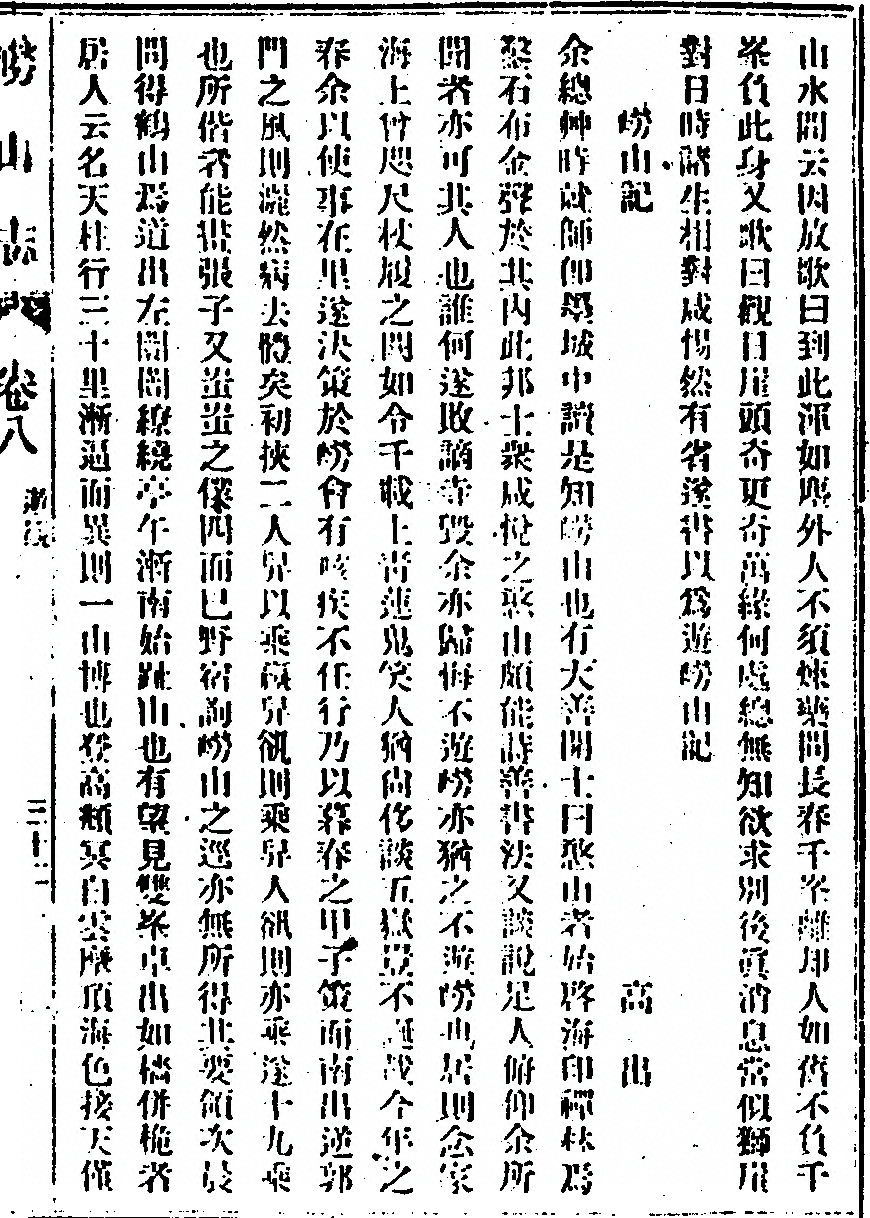 山水間云因放歌曰到此渾如塵外人不須煉藥問長春千峯離却人如舊不負千
峯負此身又歌曰觀日崖頭奇更奇萬緣何處總無知欲求別後眞消息常似獅崖
對日時諸生相對咸惕然有省遂書以爲遊嶗山記
嶗山記
高出
余總艸時就師卽墨城中讀是知嶗山也有大善開士曰憨山者始啓海印禪林爲
鑿石布金聲於其內此邦士衆咸悅之憨山頗能詩善書法又談說足人俯仰余所
聞者亦可其人也誰何遂敗謫寺毀余亦歸悔不遊嶗亦猶之不遊嶗也居則念家
海上曾咫尺杖履之間如令千載上靑蓮鬼笑人猶尙侈談五嶽豈不誕哉今年之
春余以使事在里遂決策於嶗會有痰疾不任行乃以暮春之甲子策而南出逆郭
門之風則灑然病去體矣初挾二人舁以乘羸舁飢則乘舁人飢則亦乘遂十九乘
也所偕者能書張子又蚩蚩之僕四而已野宿詢嶗山之逕亦無所得其要領次晨
問得鶴山爲道出左闇闇繚繞亭午漸南始趾山也有望見雙峯卓出如檣併桅者
居人云名天柱行三十里漸逼而異則一山博也發高頫冥白雲摩頂海色接天僅
嶗山志
卷八
遊觀
三十二